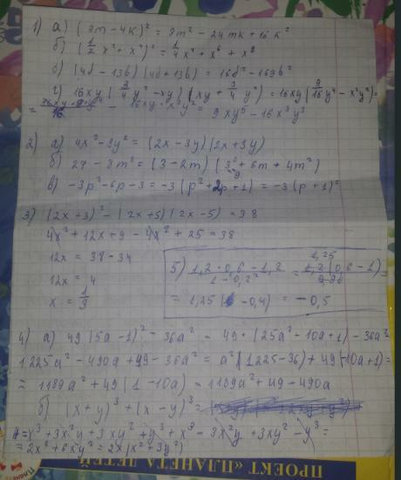 1) а) (3m-4k)² = 9m² - 24mk + 16k²
б) (1/2 x³ + x⁴)² = 1/4 x⁶ + x⁷ + x⁸
в) (4a - 13b)(4a + 13b) = 16a² - 169b²
г) 16xy (3/4 y² - xy)(xy + 3/4 y²) = 16xy (9/16 y⁴ - x²y²) =
= 9xy⁵ - 16x³y³
2) а) 4x² - 9y² = (2x - 3y)(2x + 3y)
б) 27 - 8m³ = (3 - 2m)(3² + 6m + 4m²)
в) -3p² - 6p - 3 = -3(p² + 2p + 1) = -3(p + 1)²
3) (2x + 3)² - (2x + 5)(2x - 5) = 38
4x² + 12x + 9 - 4x² + 25 = 38
12x = 38 - 34
12x = 4
x = 1/3
= 1,25 ( - 0,4) = - 0,5
4) а) 49(5a - 1)² - 36a² = 49 · (25a² - 10a + 1) - 36a²
1225a² - 490a + 49 - 36a² = a²(1225 - 36) + 49(-10a + 1) =
= 1189a² + 49(1 - 10a) = 1189a² + 49 - 490a
б) (x + y)³ + (x - y)³ =
= x³ + 3x²y + 3xy² + y³ + x³ - 3x²y + 3xy² - y³ =
= 2x³ + 6xy² = 2x(x² + 3y²)
ПРОЕКТ «ПЛАНЕТА ДЕТЕЙ